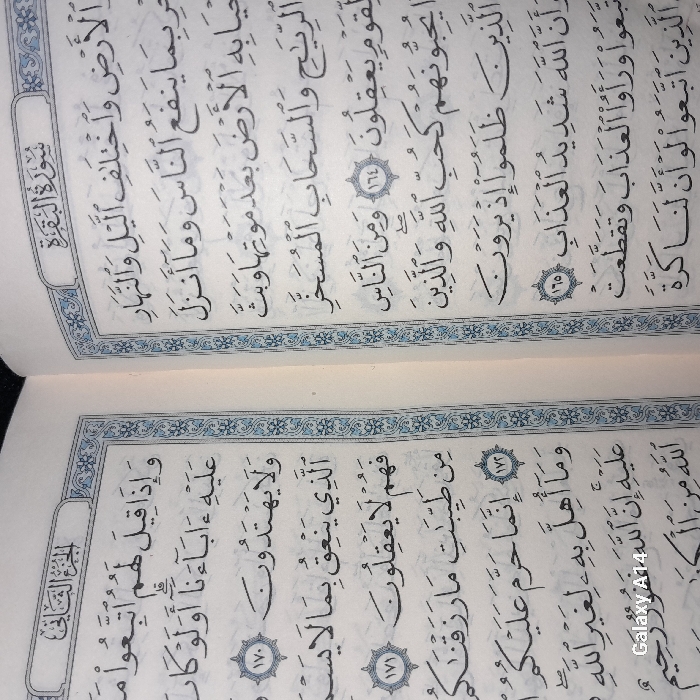 سُورَةُ البَقَرَةِ
ٱلْأَرْضِ وَٱخْتِلَٰفِ ٱلَّيْلِ وَٱلنَّهَارِ
بِمَا يَنفَعُ ٱلنَّاسَ وَمَآ أَنزَلَ
بِهِ ٱلْأَرْضَ بَعْدَ مَوْتِهَا وَبَثَّ
ٱلرِّيَٰحِ وَٱلسَّحَابِ ٱلْمُسَخَّرِ
لِّقَوْمٍ يَعْقِلُونَ ١٦٤ وَمِنَ ٱلنَّاسِ
يُحِبُّونَهُمْ كَحُبِّ ٱللَّهِ ۖ وَٱلَّذِينَ
ٱلَّذِينَ ظَلَمُوٓا۟ إِذْ يَرَوْنَ
وَأَنَّ ٱللَّهَ شَدِيدُ ٱلْعَذَابِ ١٦٥
وَرَأَوُا۟ ٱلْعَذَابَ وَتَقَطَّعَتْ
ٱلَّذِينَ ٱتَّبَعُوا۟ لَوْ أَنَّ لَنَا كَرَّةً
الجُزْءُ الثَّانِي
وَإِذَا قِيلَ لَهُمُ ٱتَّبِعُوا۟
عَلَيْهِ ءَابَآءَنَآ ۗ أَوَلَوْ كَانَ
وَلَا يَهْتَدُونَ ١٧٠
ٱلَّذِى يَنْعِقُ بِمَا لَا
فَهُمْ لَا يَعْقِلُونَ ١٧١
مِن طَيِّبَٰتِ مَا رَزَقْنَٰكُمْ
١٧٢ إِنَّمَا حَرَّمَ عَلَيْكُمُ
وَمَآ أُهِلَّ بِهِۦ لِغَيْرِ ٱللَّهِ
عَلَيْهِ ۚ إِنَّ ٱللَّهَ غَفُورٌ رَّحِيمٌ
ٱللَّهُ مِنَ
Galaxy A14